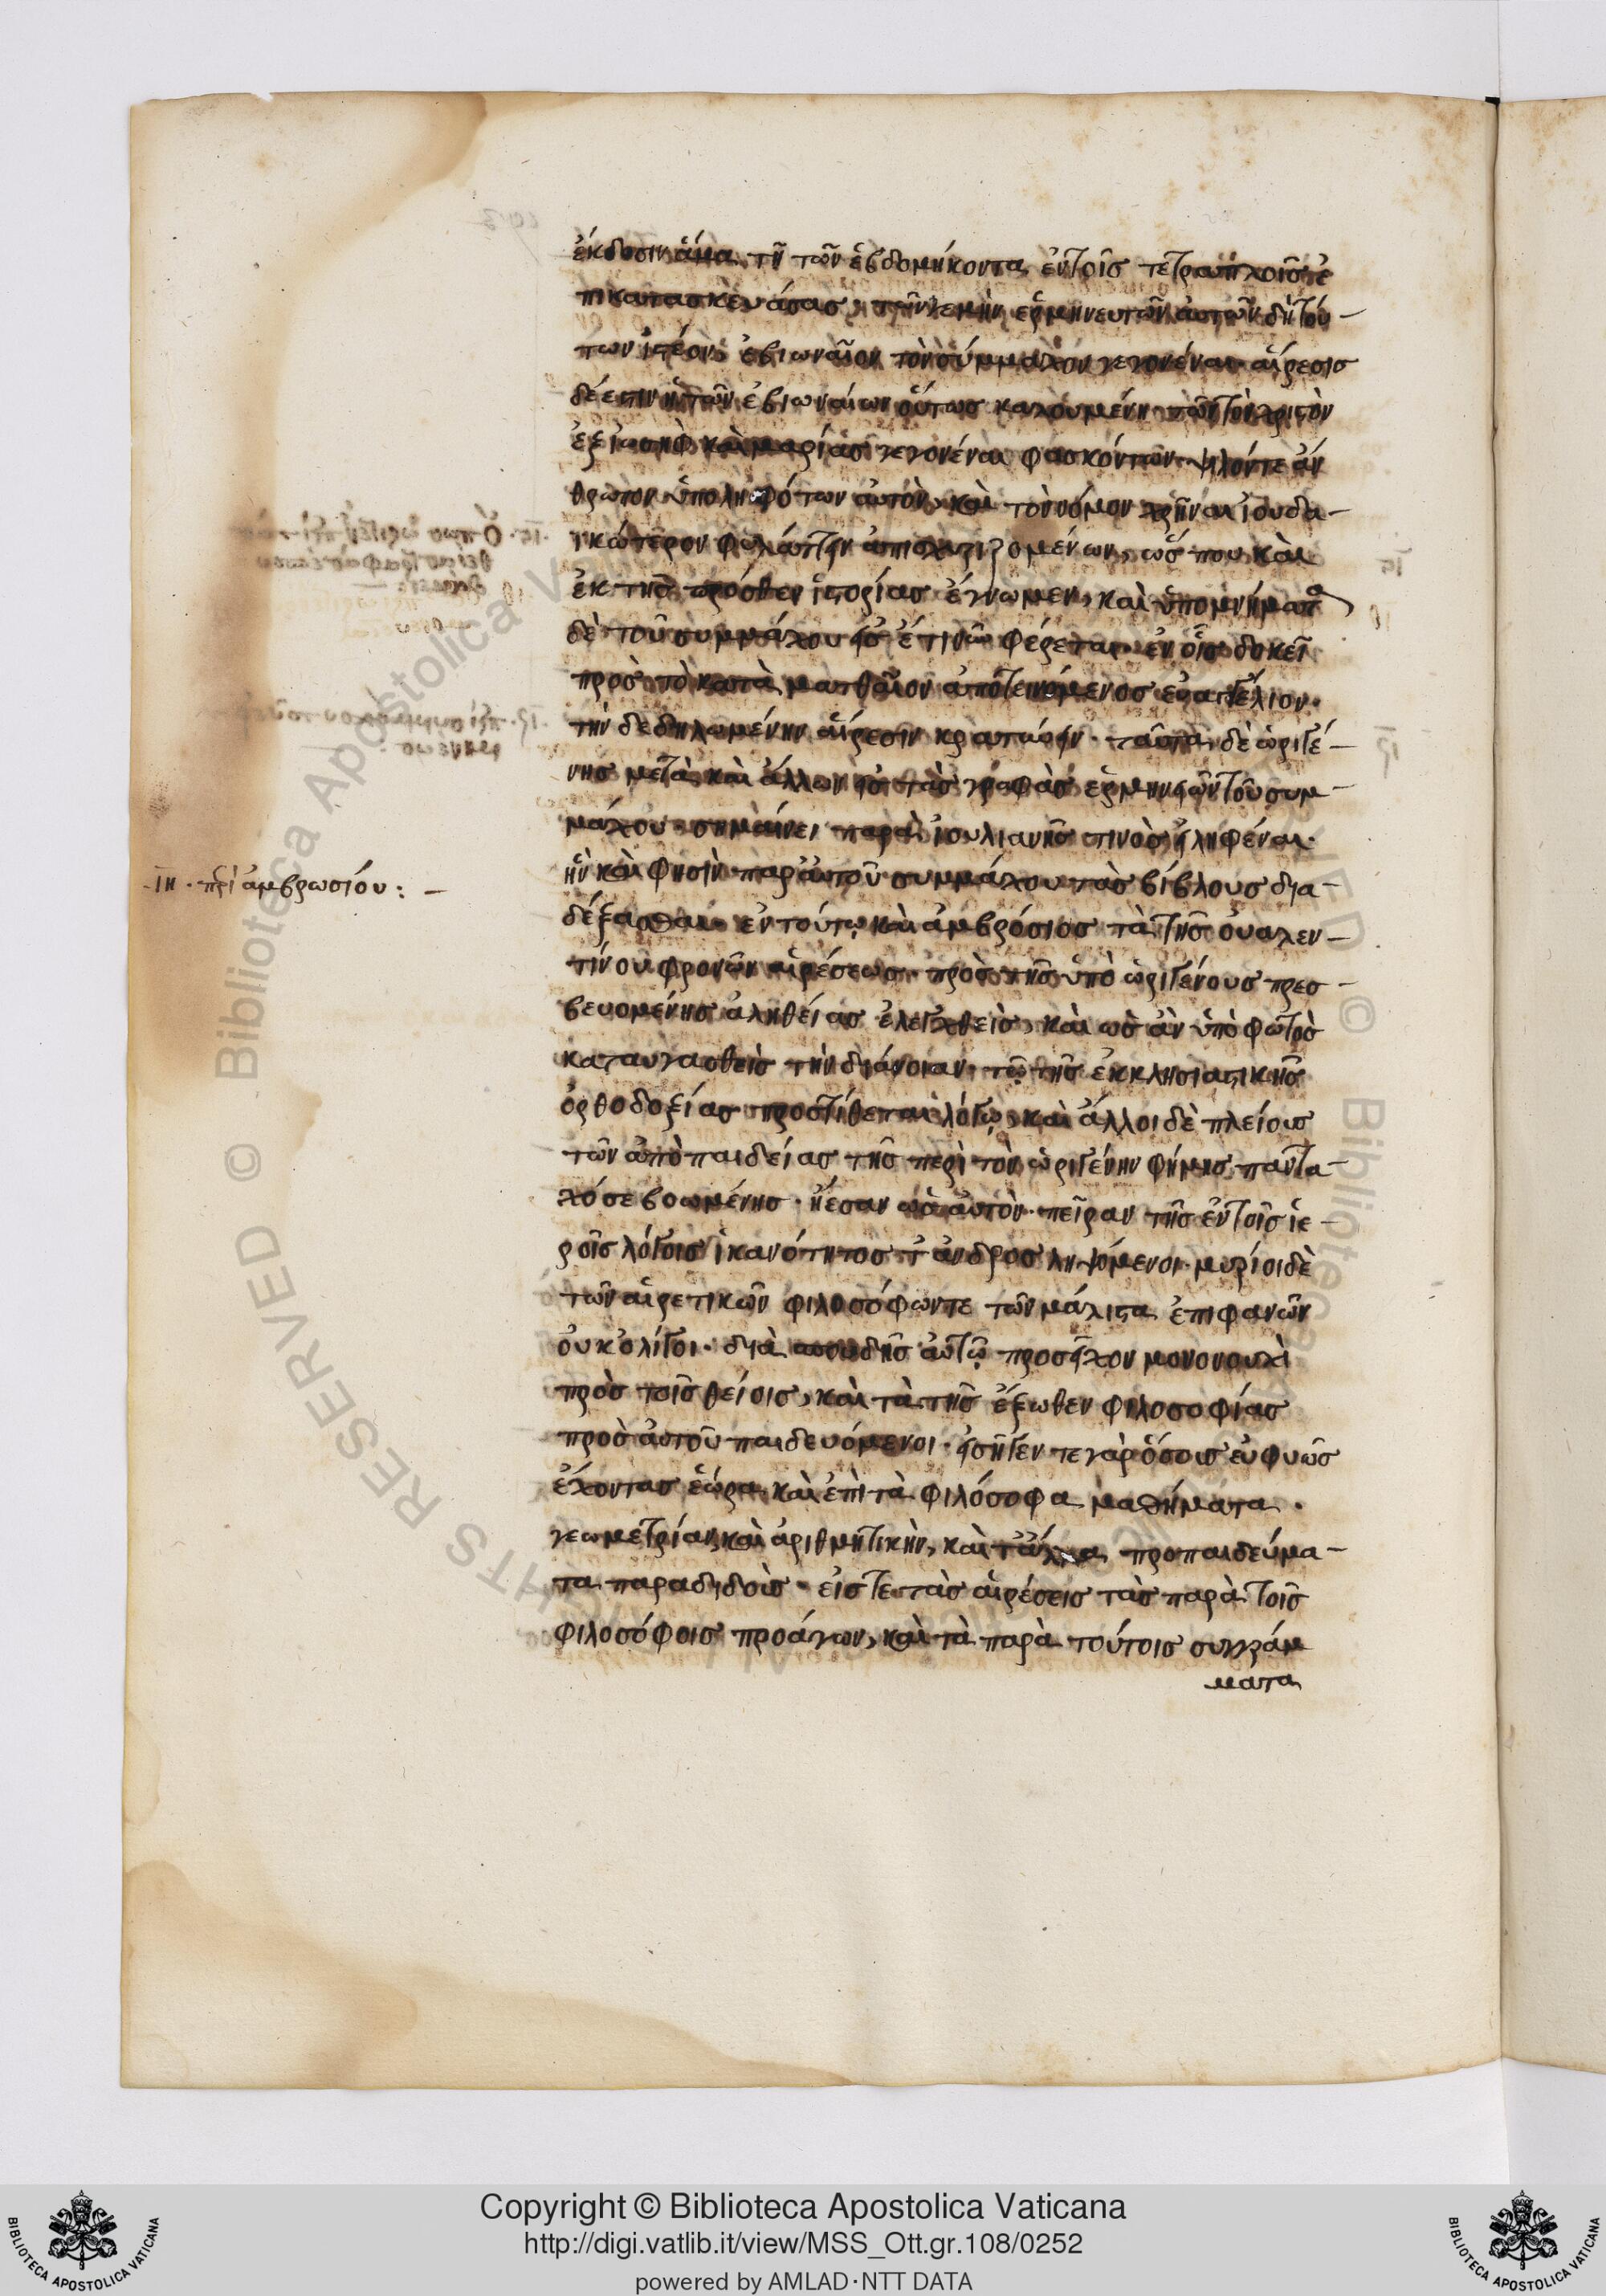 ἔκδοσιν ἅμα τῇ τῶν ἑβδομήκοντα ἐν τοῖς τετραπλοῖς ἐ
πικατασκευάσας· τῶν γε μὴν ἑρμηνευτῶν αὐτῶν δὴ τού-
των ἰστέον ἐβιωναῖον τὸν σύμμαχον γεγονέναι· αἵρεσις
δέ ἐστιν ἡ τῶν ἐβιωναίων οὕτως καλουμένη· τῶν τὸν χριστὸν
ἐξ ἰωσὴφ καὶ μαρίας γεγονέναι φασκόντων· ψιλόν τε ἄν
θρωπον ὑπολη φότων αὐτὸν, καὶ τὸν νόμον χρῆναι ἰουδα-
ικώτερον φυλάττειν ἀπισχυριζομένων, ὥς που καὶ
ἐκ τῆς πρόσθεν ἱστορίας ἔγνωμεν, καὶ ὑπομνήματα
δὲ τοῦ συμμάχου εἰς ἔτι νῦν φέρεται· ἐν οἷς δοκεῖ
πρὸς τὸ κατὰ ματθαῖον ἀποτεινόμενος εὐαγγέλιον·
τὴν δεδηλωμένην αἵρεσιν κρατύνειν· ταῦτα δὲ ὠριγέ-
νης μετὰ καὶ ἄλλων εἰς τὰς γραφὰς ἑρμηνειῶν τοῦ συμ-
μάχου σημαίνει παρὰ ἰουλιανῆς τινὸς εἰληφέναι·
ἣν καὶ φησὶν παρ' αὐτοῦ συμμάχου τὰς βίβλους δια-
-ιη· περὶ ἀμβρωσίου: -
δέξασθαι· ἐν τούτῳ καὶ ἀμβρόσιος τὰ τῆς οὐαλεν-
τίνου φρονῶν αἱρέσεως· πρὸς τῆς ὑπὸ ὠριγένους πρεσ-
βευομένης ἀληθείας ἐλεγχθεὶς, καὶ ὡς ἂν ὑπὸ φωτὸς
καταυγασθεὶς τὴν διάνοιαν· τῷ τῆς ἐκκλησιαστικῆς
ὀρθοδοξίας προστίθεται λόγῳ, καὶ ἄλλοι δὲ πλείους
τῶν ἀπὸ παιδείας τῆς περὶ τὸν ὠριγένην φήμης παντα-
χόσε βοωμένης· ᾔεσαν ὡς αὐτὸν· πεῖραν τῆς ἐν τοῖς ἱε-
ροῖς λόγοις ἱκανότητος τ ἀνδρος ληψόμενοι· μυρίοι δὲ
τῶν αἱρετικῶν φιλοσόφων τε τῶν μάλιστα ἐπιφανῶν
οὐκ ὀλίγοι· διὰ σπουδῆς αὐτῷ προσεῖχον μονονουχὶ
πρὸς τοῖς θείοις, καὶ τὰ τῆς ἔξωθεν φιλοσοφίας
πρὸς αὐτοῦ παιδευόμενοι· εἰσῆγεν τε γὰρ ὅσους εὐφυῶς
ἔχοντας ἑώρα καὶ ἐπὶ τὰ φιλόσοφα μαθήματα·
γεωμετρίαν, καὶ ἀριθμητικὴν, καὶ τἄλλα προπαιδεύμα-
τα παραδιδοὺς· εἴς τε τὰς αἱρέσεις τὰς παρὰ τοῖς
φιλοσόφοις προάγων, καὶ τὰ παρὰ τούτοις συγγράμ
ματα
Copyright © Biblioteca Apostolica Vaticana
http://digi.vatlib.it/view/MSS_Ott.gr.108/0252
powered by AMLAD·NTT DATA